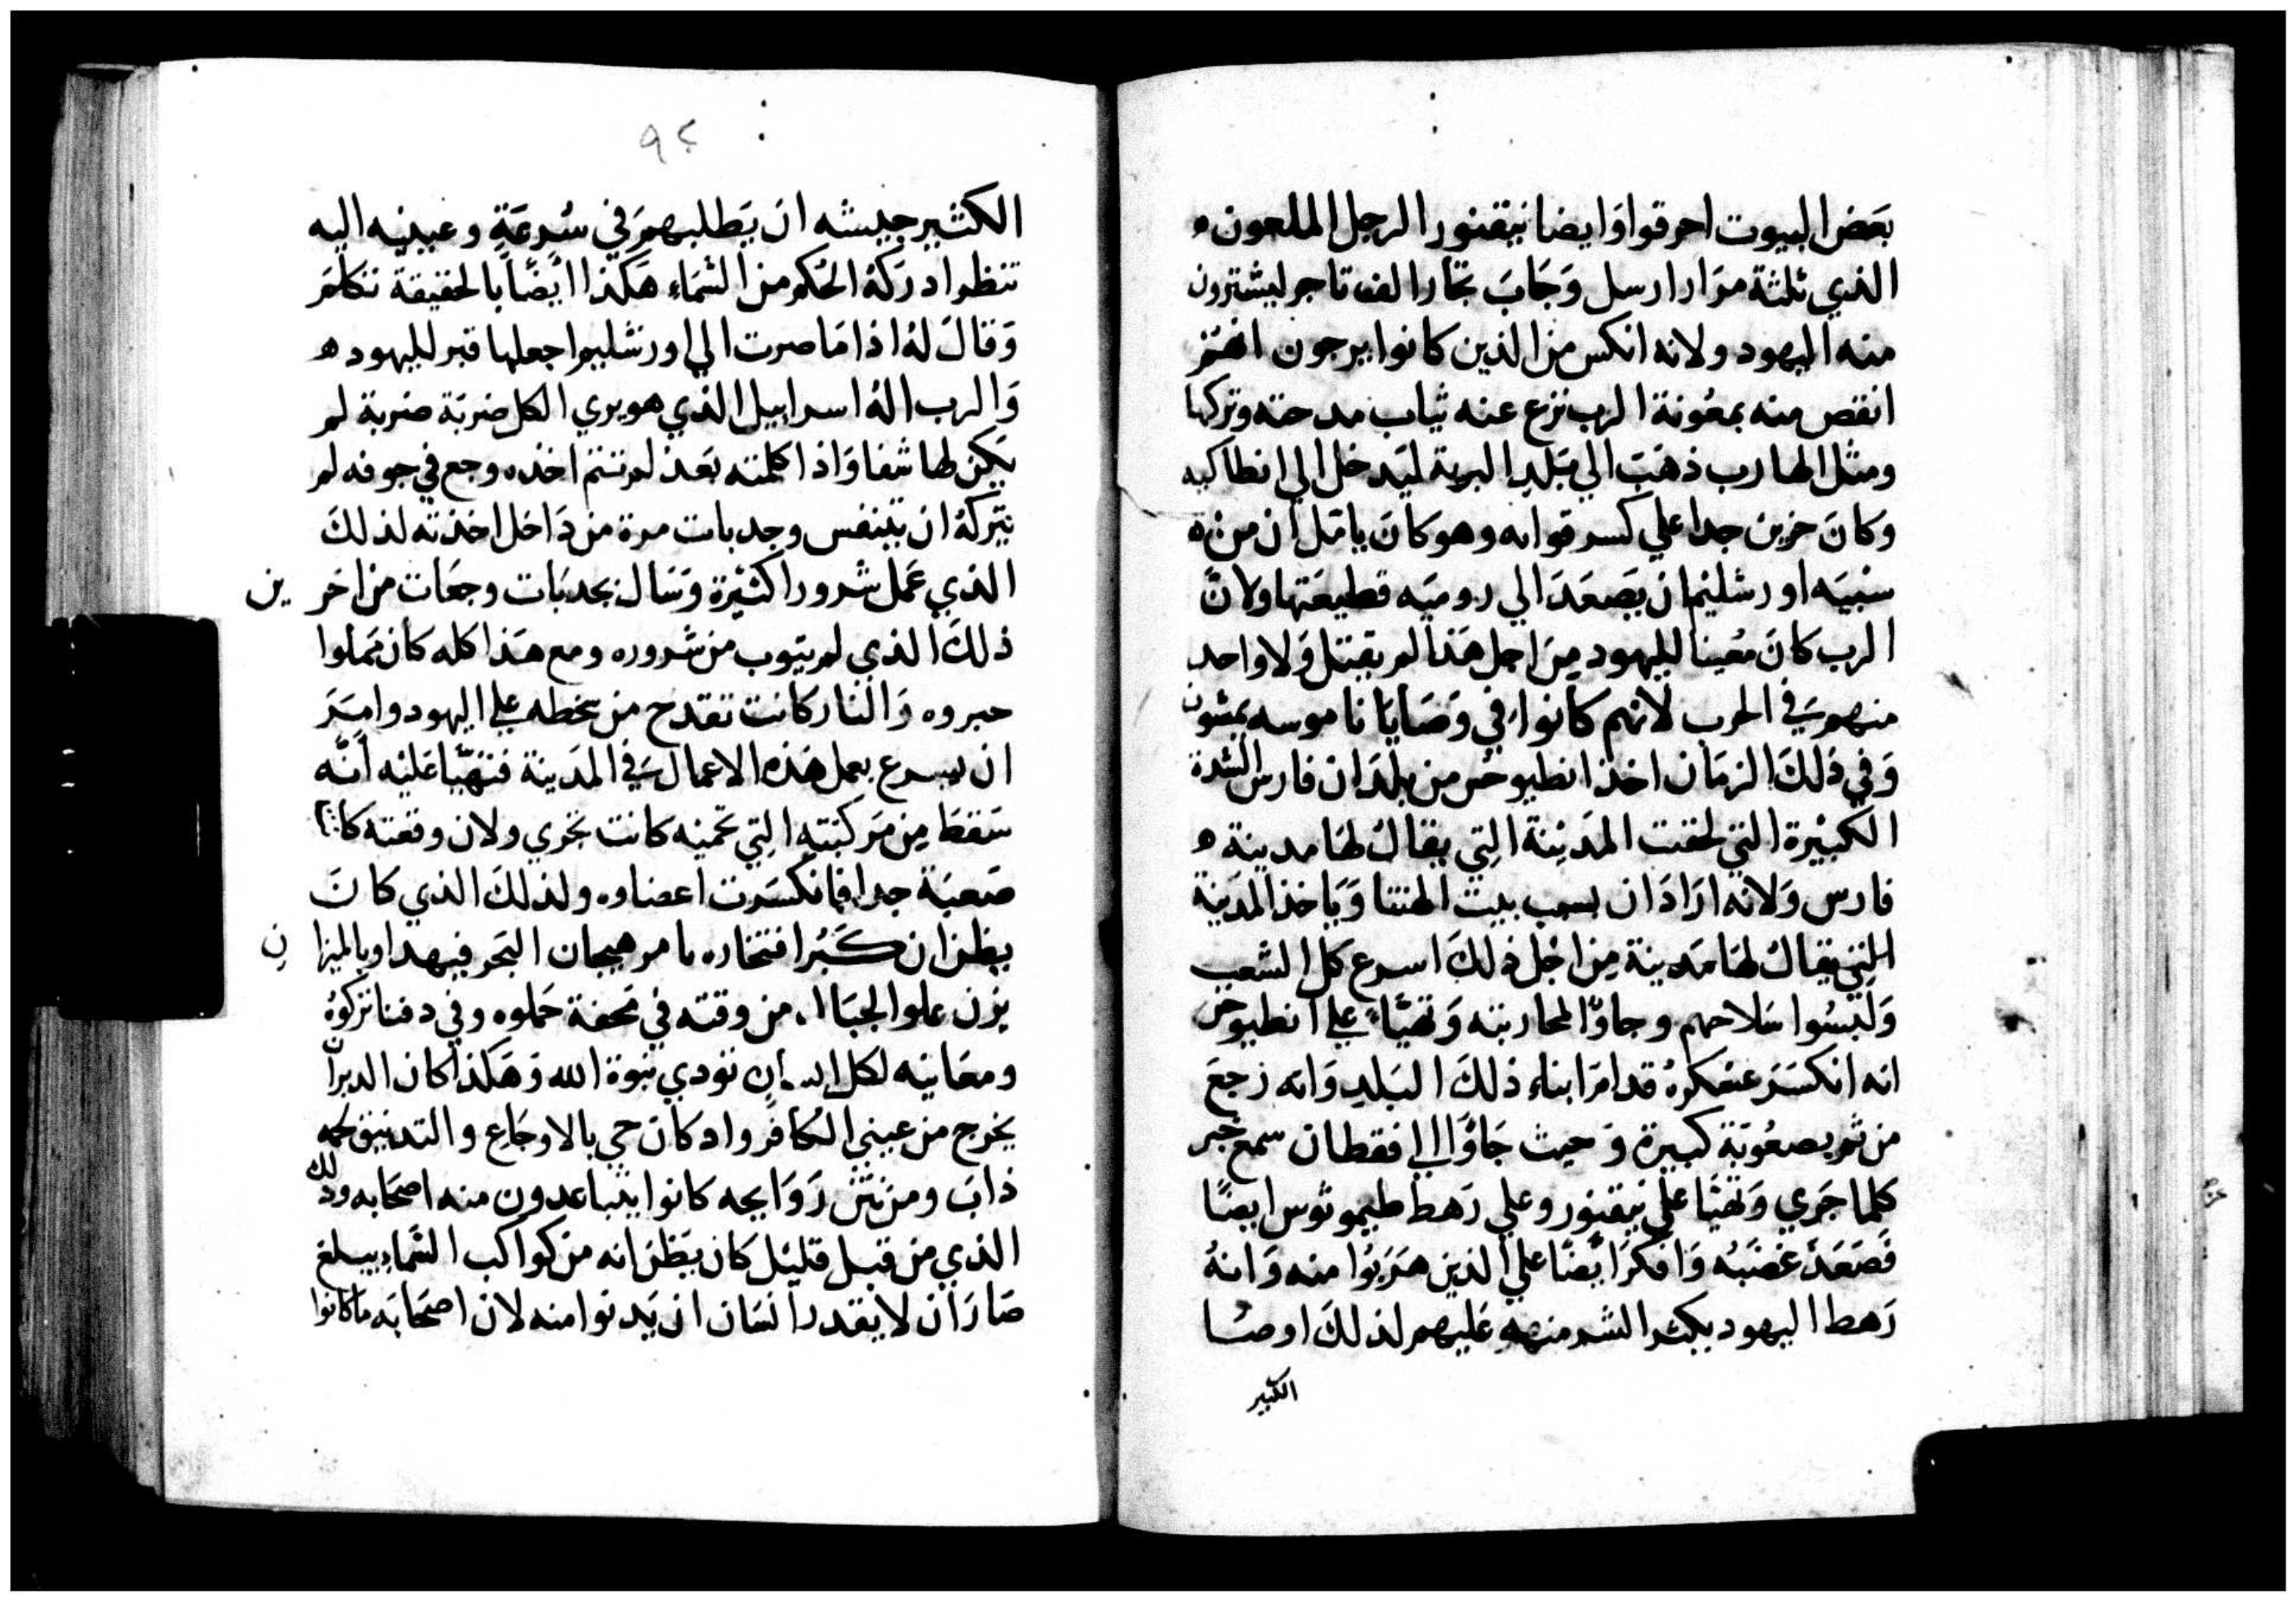 بعَض البيوت احرقوا وَايضا نيقنور الرجل الملعون ه
الذي ثلثة مرَار ارسل وَجَابَ تجار الف تاجر ليشترون
منه اليهود ولانه انكس من الذين كانوا يرجون انهُم
انقص منه بمعُونة الرب نزع عنه ثياب مدحته وتركها
ومثل الهارب ذهَبَ الي بَلدِ البرية ليَدخل الي انطاكيه
وكانَ حزين جدا علي كسر قواته وهو كانَ يامل ان من ه
سَبيَه اورشليم ان يَصعَدَ الي روميَه قطيعَتها ولانَّ
الرب كانَ مُعينا لليهود مِنَ اجل هَذا لم يقتل وَلا واحد
منهم في الحرب لانهم كانوا في وَصَايَا ناموسه يمشون
وَفي ذَلكَ الزمَان اخذ انطيوخس من بلدَان فارس الشدة
الكبيْرة التي لحقت المدَيْنة التِي يقالُ لها مدينة ه
فارس وَلانه ارَادَ ان يسب بيت الهتنا وَيَاخذ المدَينة
التي يقالُ لها مَدينة مِن اجْل ذلكَ اسرع كل الشعب
وَلبسُوا سَلاحهم وجاوّا لمحاربته وَتهيّاء علي انطيوخس
انه انكسَرَ عسْكرهُ قدامَ ابناء ذلكَ البَلدِ وَانه رَجعَ
من ثم بصعُوبَة كبيرة وَحيث جَاوَا الي افقطان سمع خبر
كلما جَري وَتهيَّا علي نيقنور وعلي رَهط طيموثوس ايضًا
فَصَعَدَ غضَبُه وَافكرَ ايضًا علي الذين هَرَبُوا منه وَانهُ
رَهط اليهود بكثر الشر منهم عَليهم لذلكَ اوصَا
الكبير
٩٤
الكثير جيشه ان يَطلبهمَ في سُرعَةٍ وعينيه اليه
تنظر ادرَكهُ الحُكم من السّمَاء هَكذا ايضًا بالحقيقة تكَلمَ
وَقالَ لهُ اذا مَا صرت الي اورشليم اجعلها قبر لليهود ه
وَالرب الهُ اسراييل الذي هو يري الكل ضربَة ضربة لم
يَكن لها شفا وَاذا كلمته بَعد لم تتم اخذه وجع في جوفه لم
يَتركهُ ان يتنفس وجدبات مرة من دَاخل اخذته لذلكَ
الذي عَمل شرورا كثيْرة وَنال بجدبَات وجعَات من اخرين
ذلكَ الذي لم يتوب من شروره ومع هَذا كله كان مَملوا
حبروه وَالنار كانت تقدح من سخطه علي اليهود وامَرَ
ان يسرع بعمل هَذه الاعمال في المدَينة فتهَيّا عَليْه أنَّه
سَقط مِن مَركبَتهِ التِي تحميه كانت تجري ولان وقعته كانت
صَعبَة جدا فانكسَرت اعضاوه ولذلكَ الذي كانَ
يظن ان كَبُر افتخاره يامر هيجان البَحر فيهدا وبالميزان
يزن علوا الجبَال من وقته في مَحفة حَملوه وفي دفنا تركوُه
ومعَاينه لكل انسان تودي نبوة الله وَهَكذا كان الديران
يخرج من عيني الكافر واد كانَ حي بالاوجَاع والتدنيق لحمه
ذابَ ومن نتن رَوَايحه كانوا يتباعدون منه اصحَابه وذلك
الذي من قبل قليْل كان يَظن انه من كواكب السَّماء يبلغ
صَارَ ان لا يقدر انسَان ان يَدنوا منه لان اصحَابَه مَا كانوا